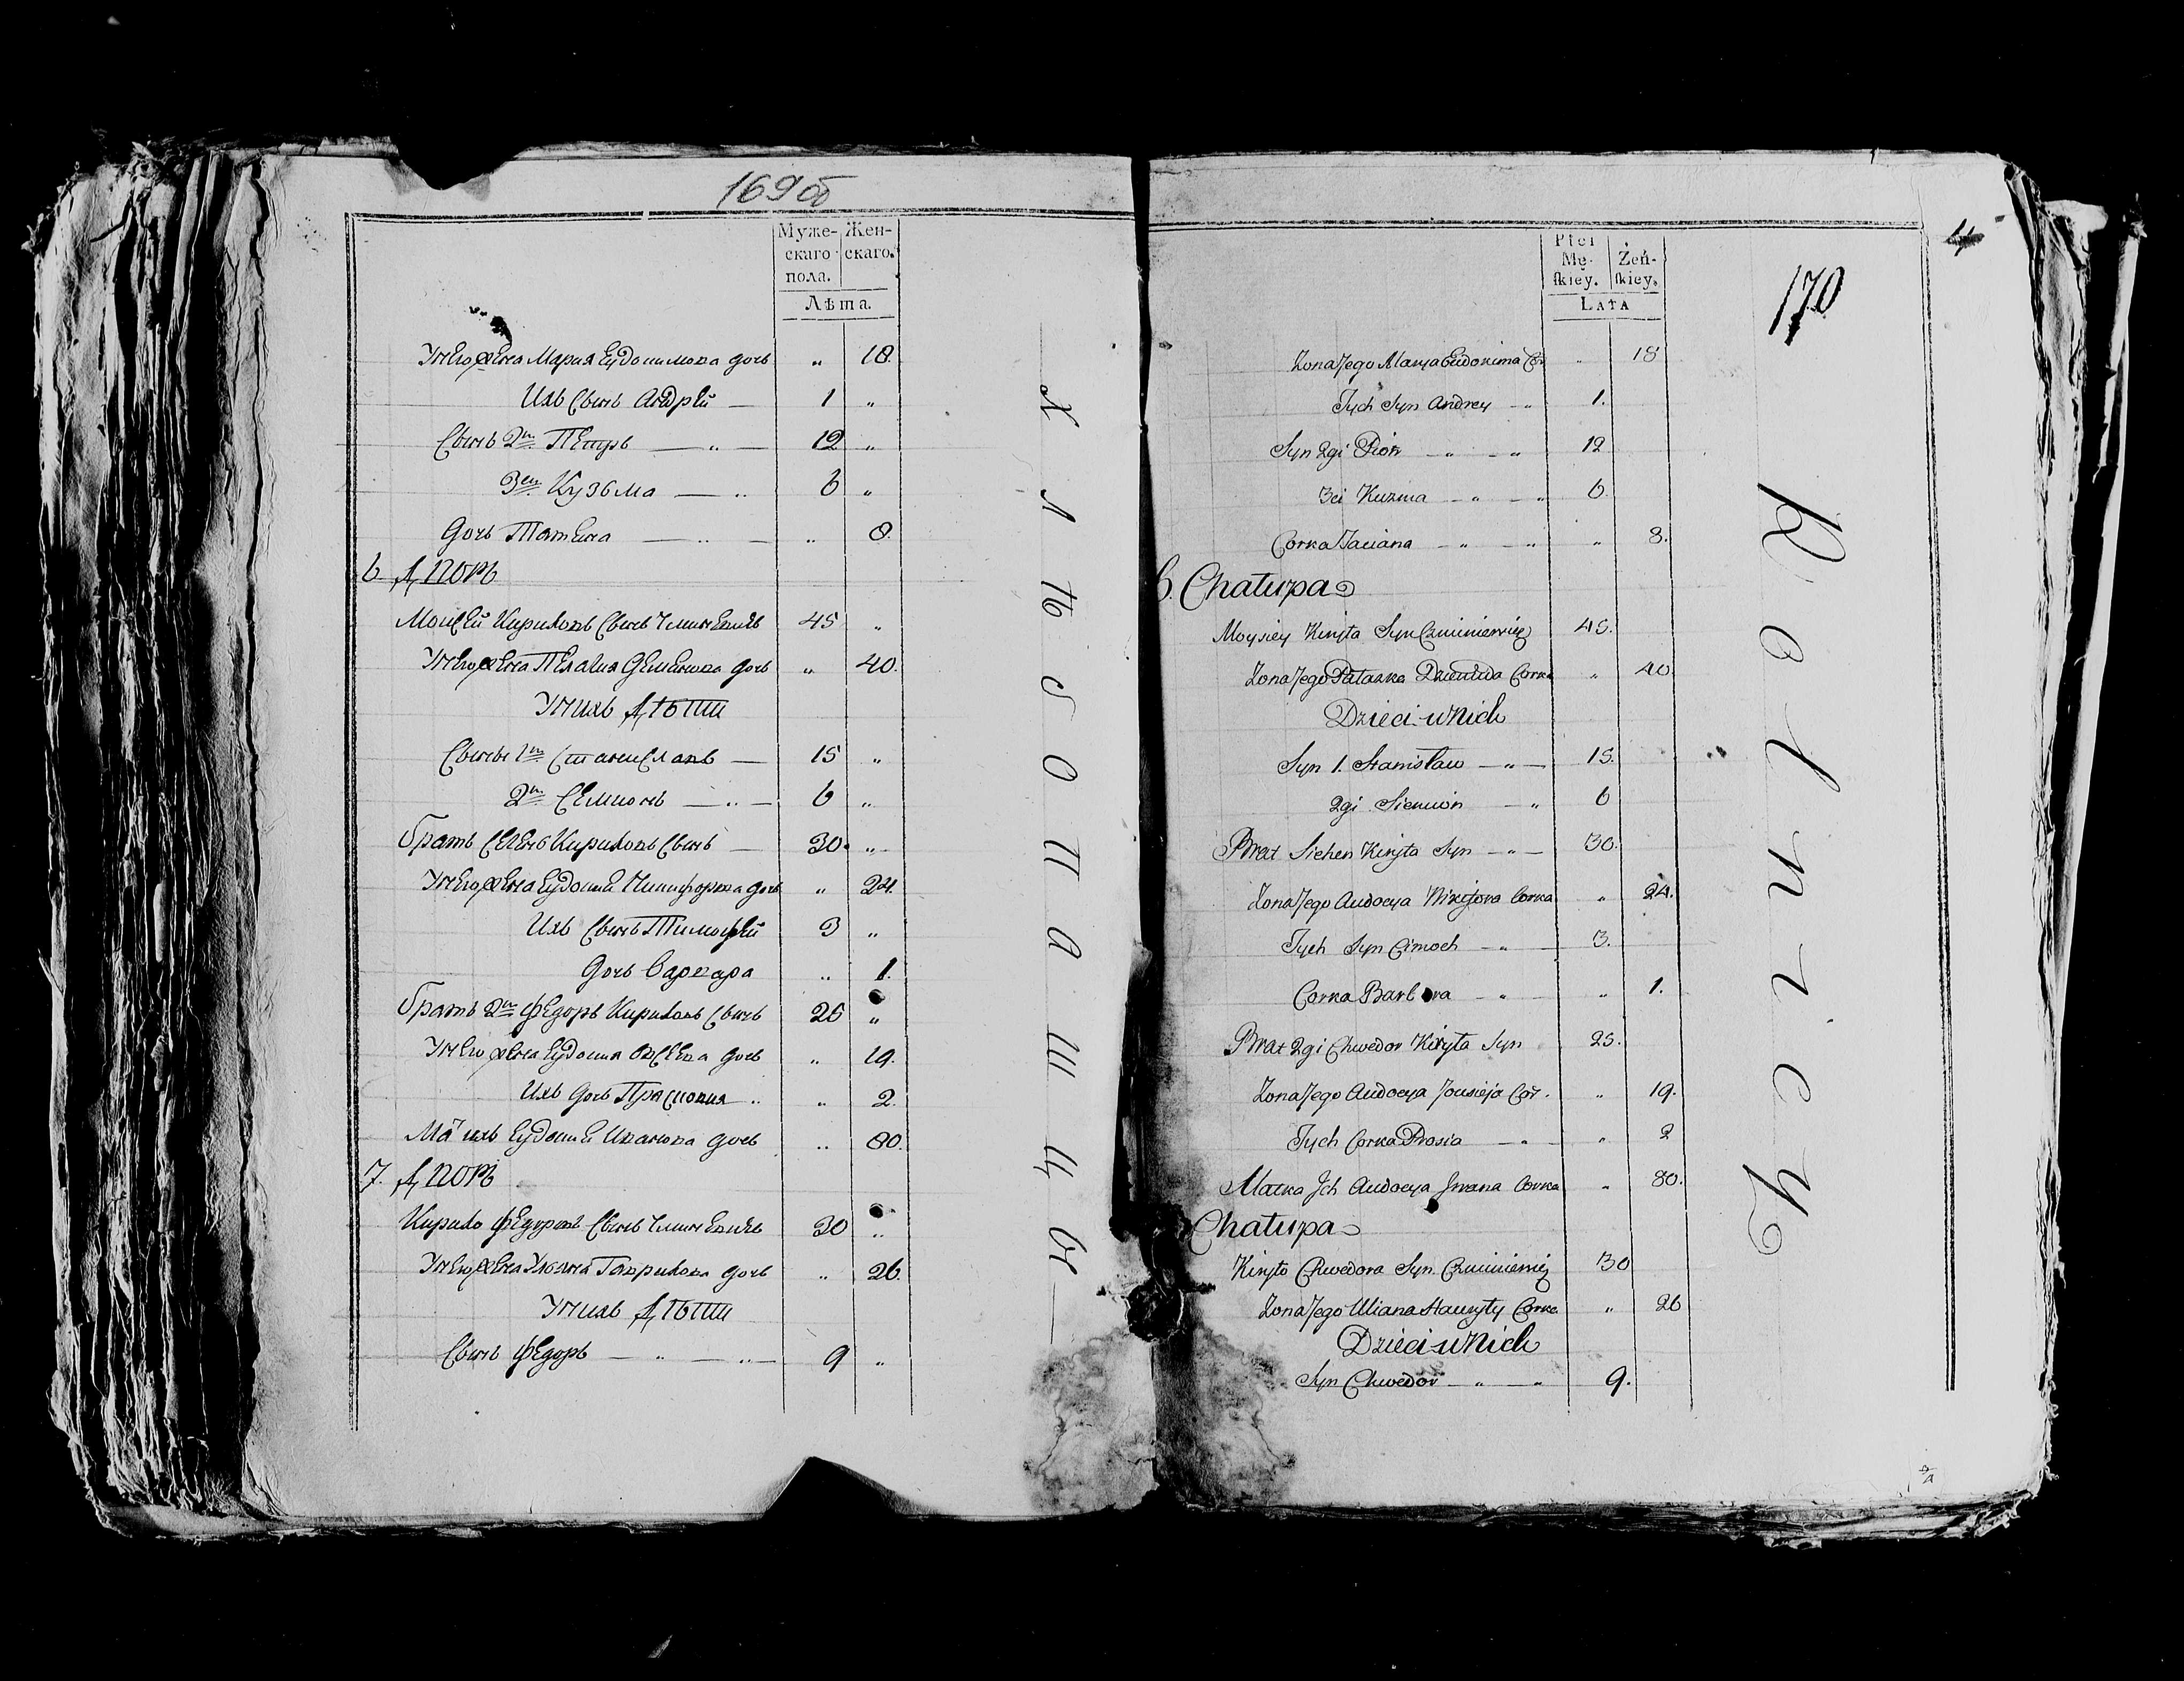 169об
Муже-
скаго
пола.
Жен-
скаго.
Лѣта.
У него жена Мария Еудокимова дочь „ 18.
Ихъ сынъ Андрей — 1 „
Сынъ 2й Петръ — „ — 12 „
3ей Кузьма — „ 6 „
Дочь Татьяна — „ — „ 8.
6. Дворъ
Моисей Кириловъ сынъ 45 „
У него жена Пелагия дочь „ 40.
У нихъ дѣти
Сыновья 1й Станиславъ — 15 „
2й Семионъ — „ — 6 „
Братъ Кириловъ сынъ — 30. „
У него жена Еудокия Никифорова дочь „ 24.
Ихъ сынъ Тимофей 3 „
Дочь Варвара „ 1.
Братъ 2й Федоръ Кириловъ сынъ 25 „
У него жена Еудокия дочь „ 19.
Ихъ дочь Прасковия „ „ 2.
Мать ихъ Еудокия Иванова дочь „ 80.
7. Дворъ
Кирило Федоровъ сынъ 30 „
У него жена Ульяна Гаврилова дочь „ 26.
У нихъ дѣти
Сынъ Федоръ — „ — „ — 9 „
Хлѣбопашцы
4
170
Płci
Mę-
ſkiey.
Żeń-
ſkiey.
LATA
Zona Jego Marya Eudokima Cor „ 18
Jych Syn Andrey — „ 1.
Syn 2gi Piotr — „ — „ 12
3ci Kuzma — „ — „ 6.
Corka Taciana — „ — „ „ 8.
6. Chałupa
Moysiey Kiryła Syn 45.
Zona Jego Corka „ 40.
Dzieci u Nich
Syn 1. Stanisław — „ — 15.
2gi Siemion — „ 6
Brat Kiryła Syn — „ — 30.
Zona Jego Audocya Nikifora Corka „ 24.
Jych Syn Cimoch — „ — 3.
Corka Barbara — „ — „ 1.
Brat 2gi Chwedor Kiryła Syn 25.
Zona Jego Audocya Cor. „ 19.
Jych Corka Prosia — „ — „ 2
Matka Jch Audocya Jwana Corka „ 80.
Chałupa
Kiryło Chwedora Syn 30
Zona Jego Uliana Hauryły Corka „ 26
Dzieci u Nich
Syn Chwedor — „ — „ 9.
Rolnicy